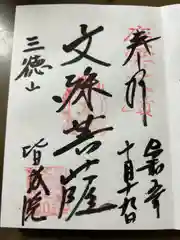 奉拝
十月十九日
文殊菩薩
三徳山
皆成院